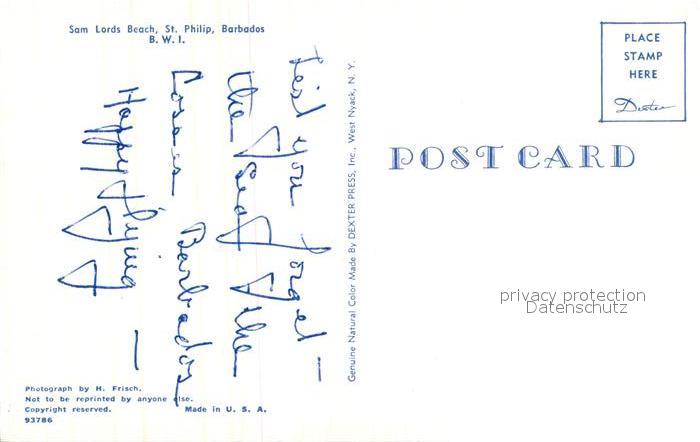 Sam Lords Beach, St. Philip, Barbados
B. W. I.
Lest you forget —
the Seat of the
Barbados
Happy Flying —
Photograph by H. Frisch.
Not to be reprinted by anyone else.
Copyright reserved. Made in U. S. A.
93786
Genuine Natural Color Made By DEXTER PRESS, Inc., West Nyack, N. Y.
PLACE
STAMP
HERE
Dexter
POST CARD
privacy protection
Datenschutz